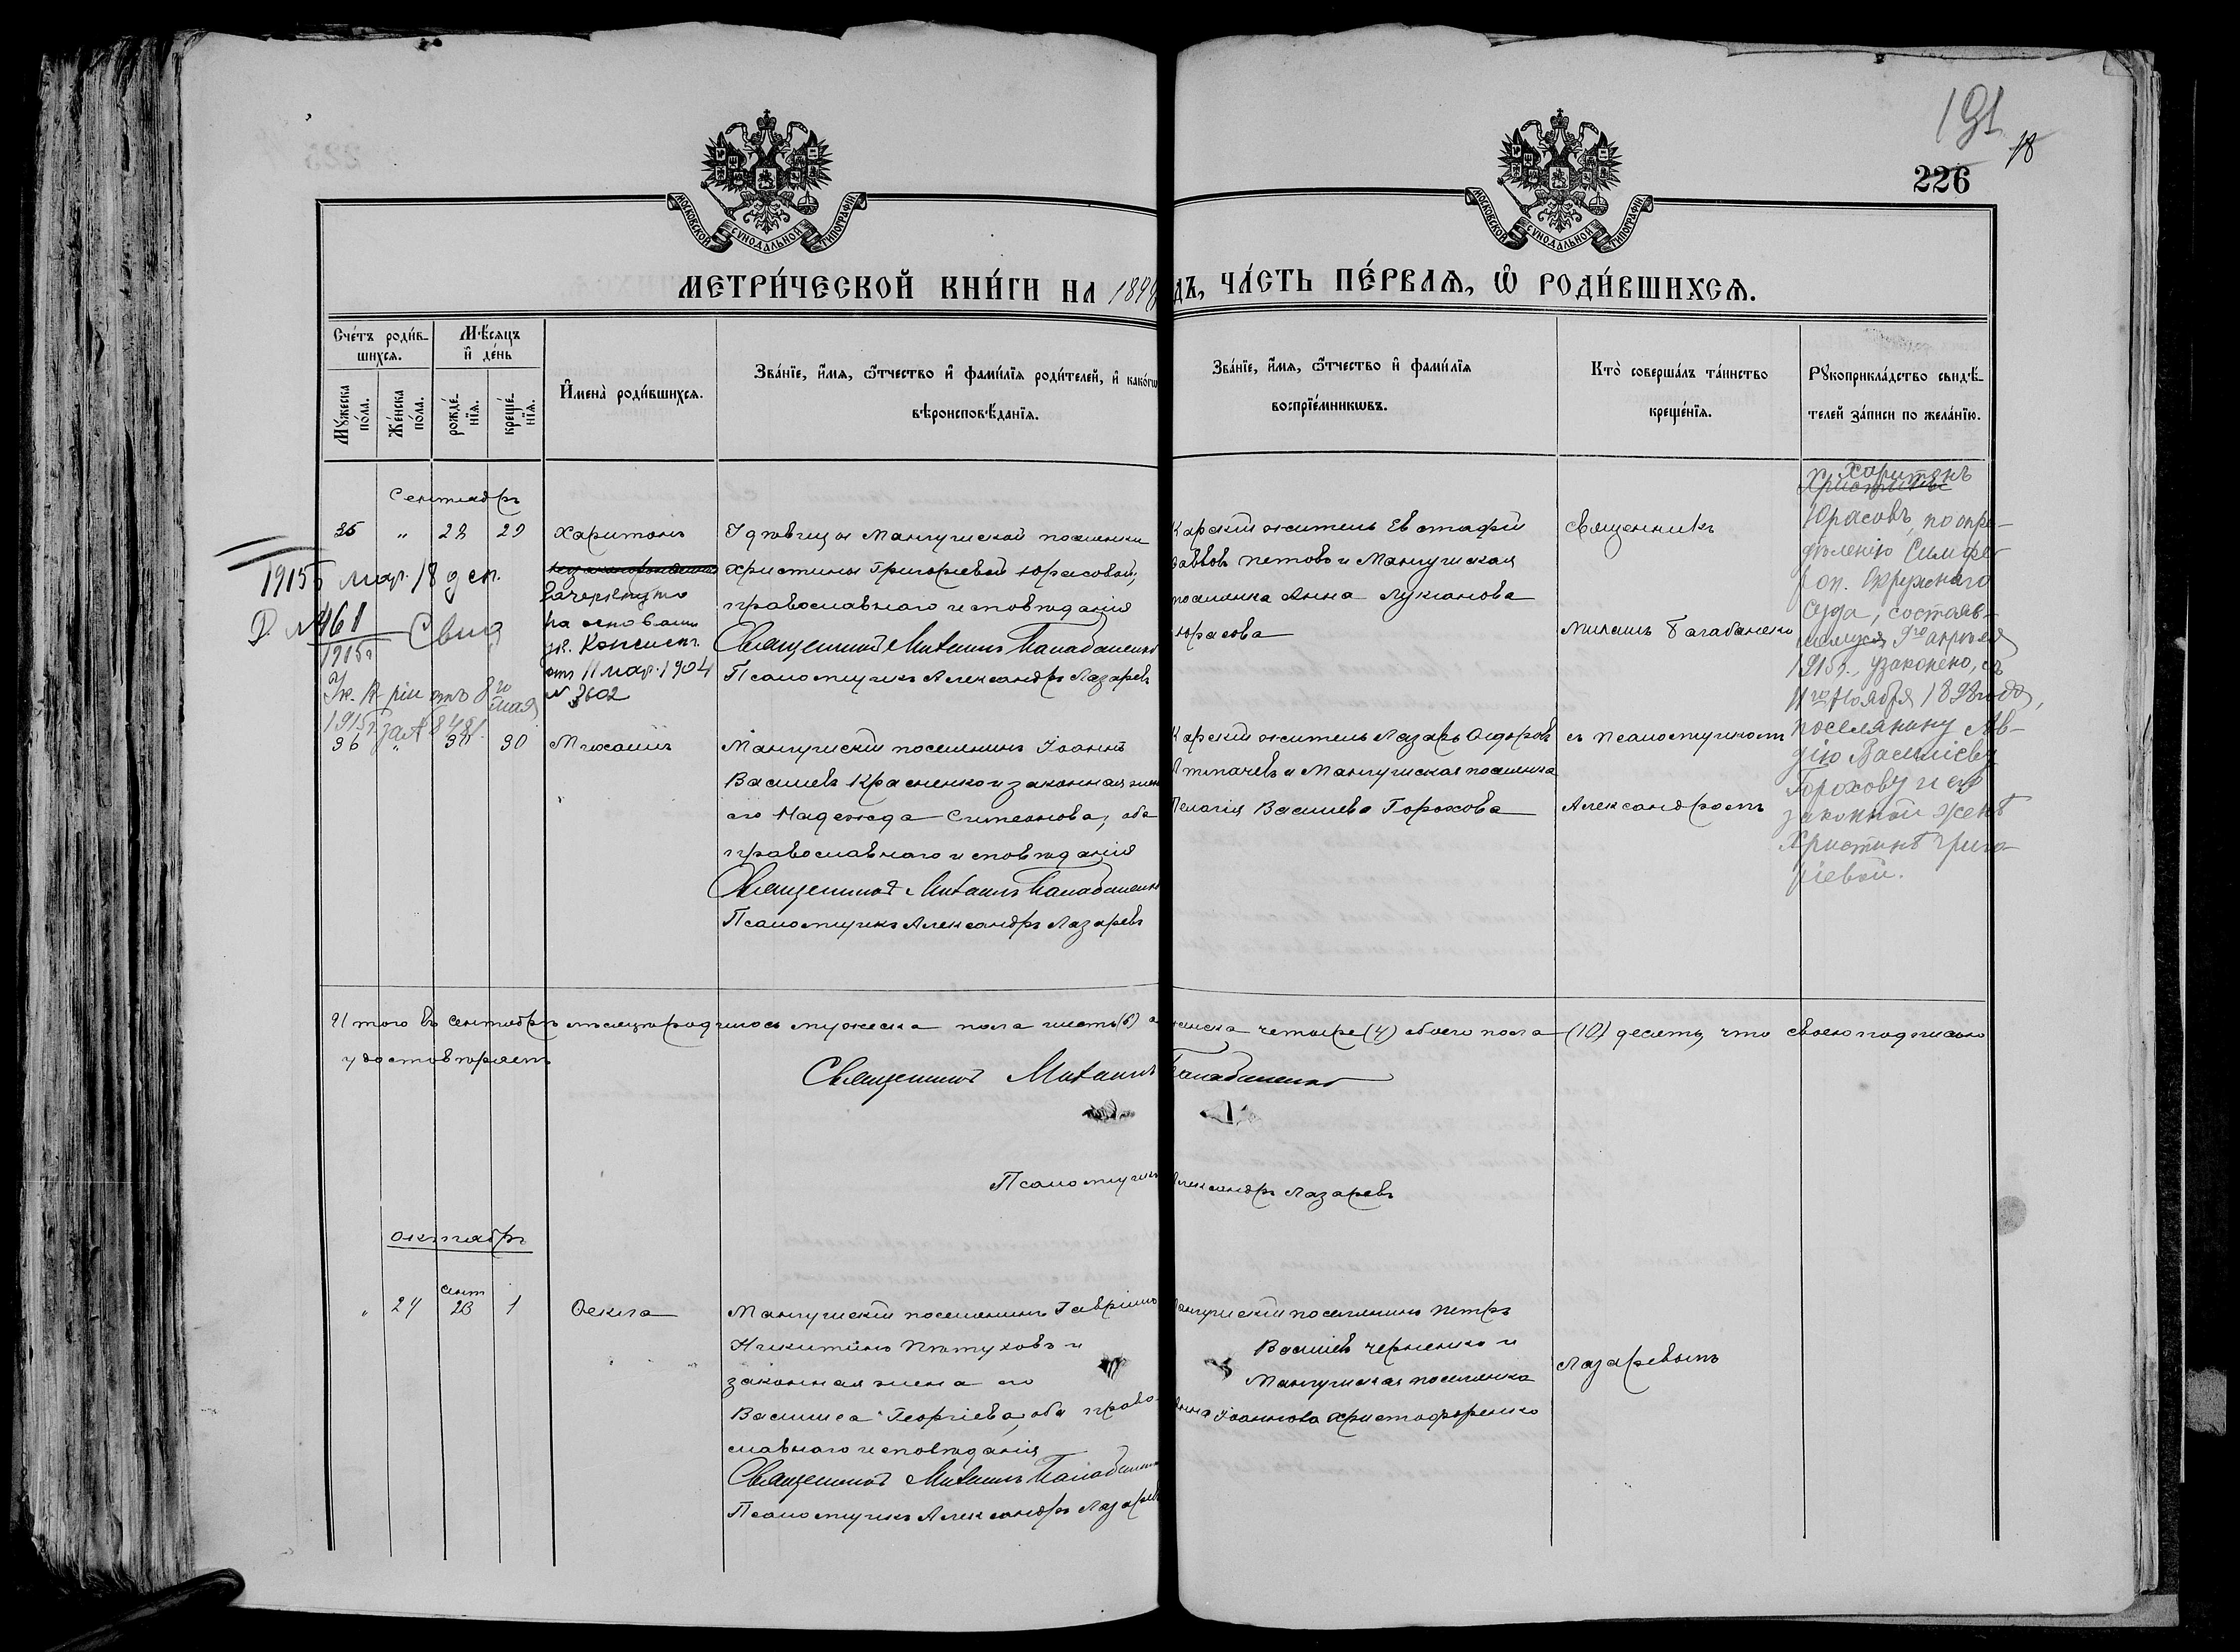 191
18
226
МОСКОВСКОЙ СѴНОДАЛЬНОЙ ТИПОГРАФІИ
МОСКОВСКОЙ СѴНОДАЛЬНОЙ ТИПОГРАФІИ
МЕТРИ́ЧЕСКОЙ КНИ́ГИ НА 1898
ДЪ, ЧА́СТЬ ПЕ́РВАЯ, Ѽ РОДИ́ВШИХСЯ.
Сче́тъ роди́в-
шихся.
Мꙋжеска по́ла.
Же́нска по́ла.
Мѣ́сяцъ и҆ де́нь
рожде́нїя.
креще́нїя.
И҆мена̀ роди́вшихся.
Зва́нїе, и҆́мя, ѻ҆́тчество и҆ фами́лїя роди́телей, и҆ како́гѡ
вѣроисповѣ́данїя.
Зва́нїе, и҆́мя, ѻ҆́тчество и҆ фами́лїя
воспрїе́мникѡвъ.
Кто̀ соверша́лъ та́инство
креще́нїя.
Рꙋкоприкла́дство свидѣ́-
телей за́писи по жела́нїю.
Сентябрь
35 " 28 29
Харитонъ
зачеркнуто
на основаніи
ук. Консист.
отъ 11 мар. 1904
N 3602
вдовицы Мангушской поселянки
Христины Григорьевой Юрасовой,
православнаго исповѣданія
Священникъ Михаилъ Балабаненко
Псаломщикъ Александръ Лазаревъ
Карскій житель Евстафій
Савовъ Петовъ и Мангушская
поселянка Анна Лукіанова
Юрасова
Священникъ
Михаилъ Балабаненко
1915 г. мар. 18 дня.
Д. № 461
1915 г.
Свид
Ук. К-ріи отъ 8го мая
1915 г. за № 8481.
Харитонъ
Юрасовъ, по опре-
дѣленію Симфе-
роп. Окружнаго
Суда, состояв-
шемуся 9го апрѣля
1915 г., узаконено, съ
11го Ноября 1898 года,
поселянину Ав-
дію Василіеву
Горохову и его
законной женѣ
Христинѣ Григо-
ріевой.
36 " 30 30
Михаилъ
Мангушскій поселянинъ Іоаннъ
Василіевъ Красненко и законная жена
его Надежда Симеонова, оба
православнаго исповѣданія
Священникъ Михаилъ Балабаненко
Псаломщикъ Александръ Лазаревъ
Карскій житель Лазарь Ѳедоровъ
и Мангушская поселянка
Пелагія Василіева Горохова
съ псаломщикомъ
Александромъ
Итого въ Сентябрѣ мѣсяцѣ родилось мужеска пола шесть (6) а женска четыре (4) обоего пола (10) десять, что своею подписью
удостовѣряемъ
Священникъ Михаилъ Балабаненко
Псаломщикъ Александръ Лазаревъ
октябрь
" 24 сент 28 1
Ѳекла
Мангушскій поселянинъ Гавріилъ
Никитинъ Пѣтуховъ и
законная жена его
Василиса Георгіева, оба право-
славнаго исповѣданія
Священникъ Михаилъ Балабаненко
Псаломщикъ Александръ Лазаревъ
Мангушскій поселянинъ Петръ
Василіевъ Черненко и
Мангушская поселянка
Анна Іоаннова Христофоренко
Лазаревымъ